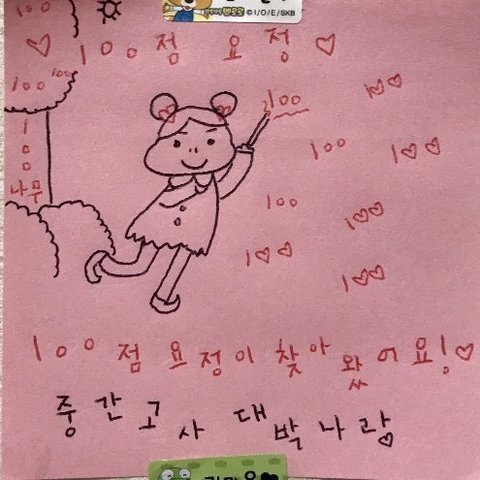 ©I/O/E/SKB
100
♡ 100점 요정 ♡
100
100 100
100
나무
100
1♡♡
100
1♡♡
100
1♡♡
1♡♡
1♡♡
100점 요정이 찾아왔어요!♡
중간고사 대박나랑♡